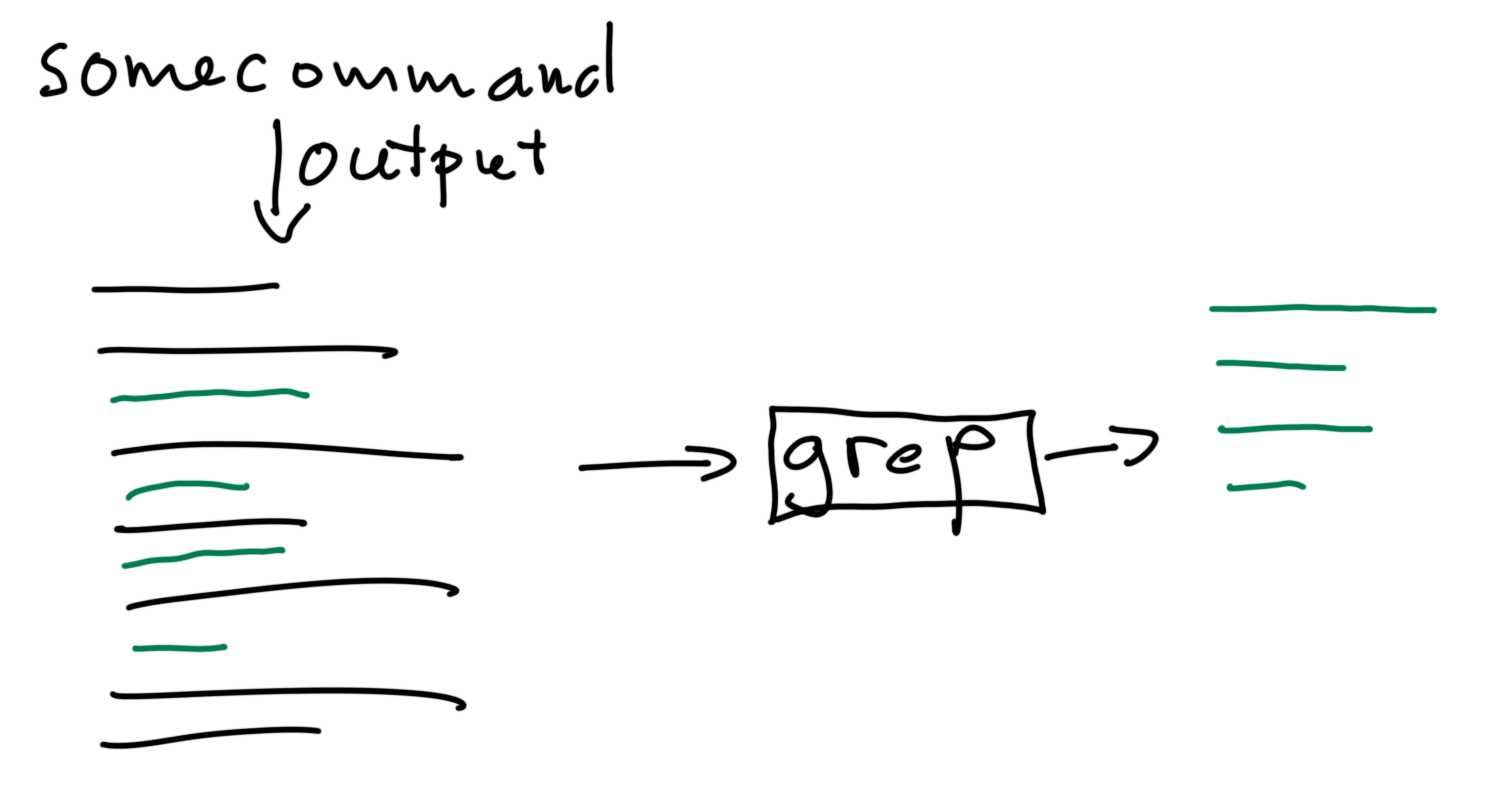 somecommand
output
grep